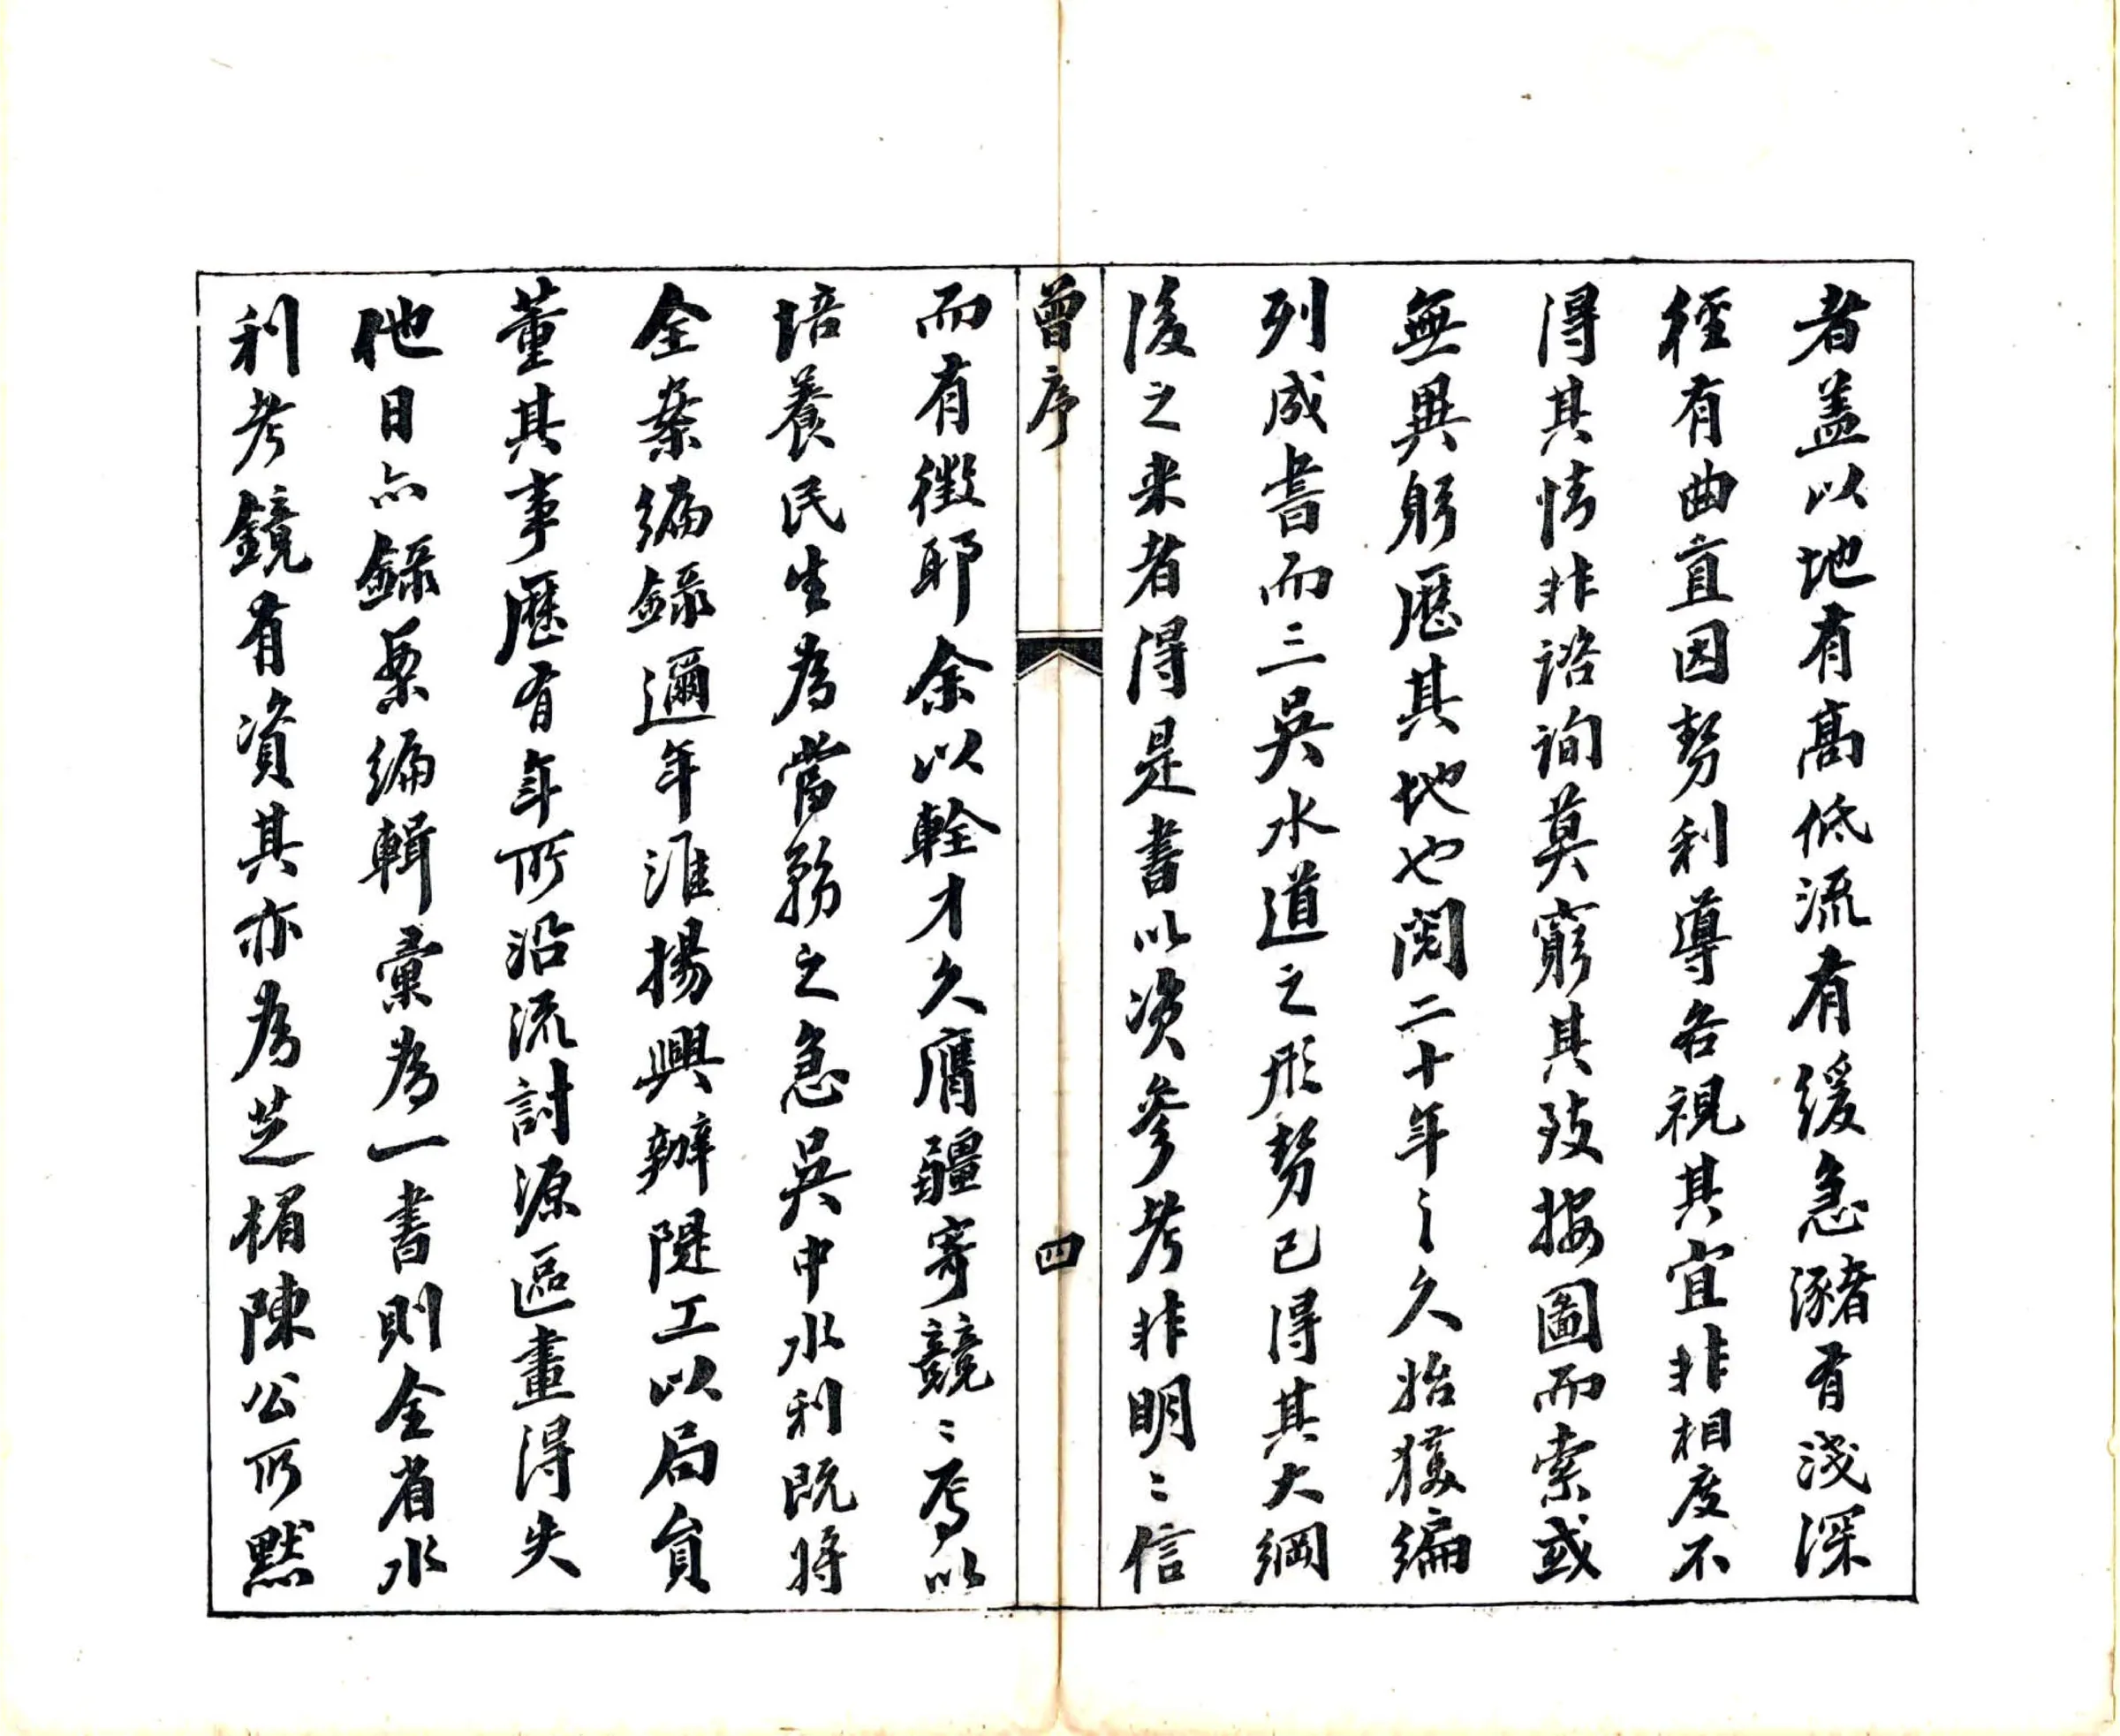 者蓋以地有髙低流有緩急瀦有淺深
徑有曲直因勢利導各視其宜非相度不
得其情非諮詢莫窮其致按圖而索或
無異躬歷其地也閱二十年之久始獲編
列成書而三吳水道之形勢已得其大綱
後之来者得是書以資參考非明〻信
而有徵耶余以輇才久膺疆寄兢〻焉以
培養民生為當務之急吳中水利既將
全案編錄邇年淮揚興辦隄工以局員
董其事歷有年所沿流討源區畫得失
他日亦錄案編輯彙為一書則全省水
利考鏡有資其亦為芝楣陳公所默
曾序
四